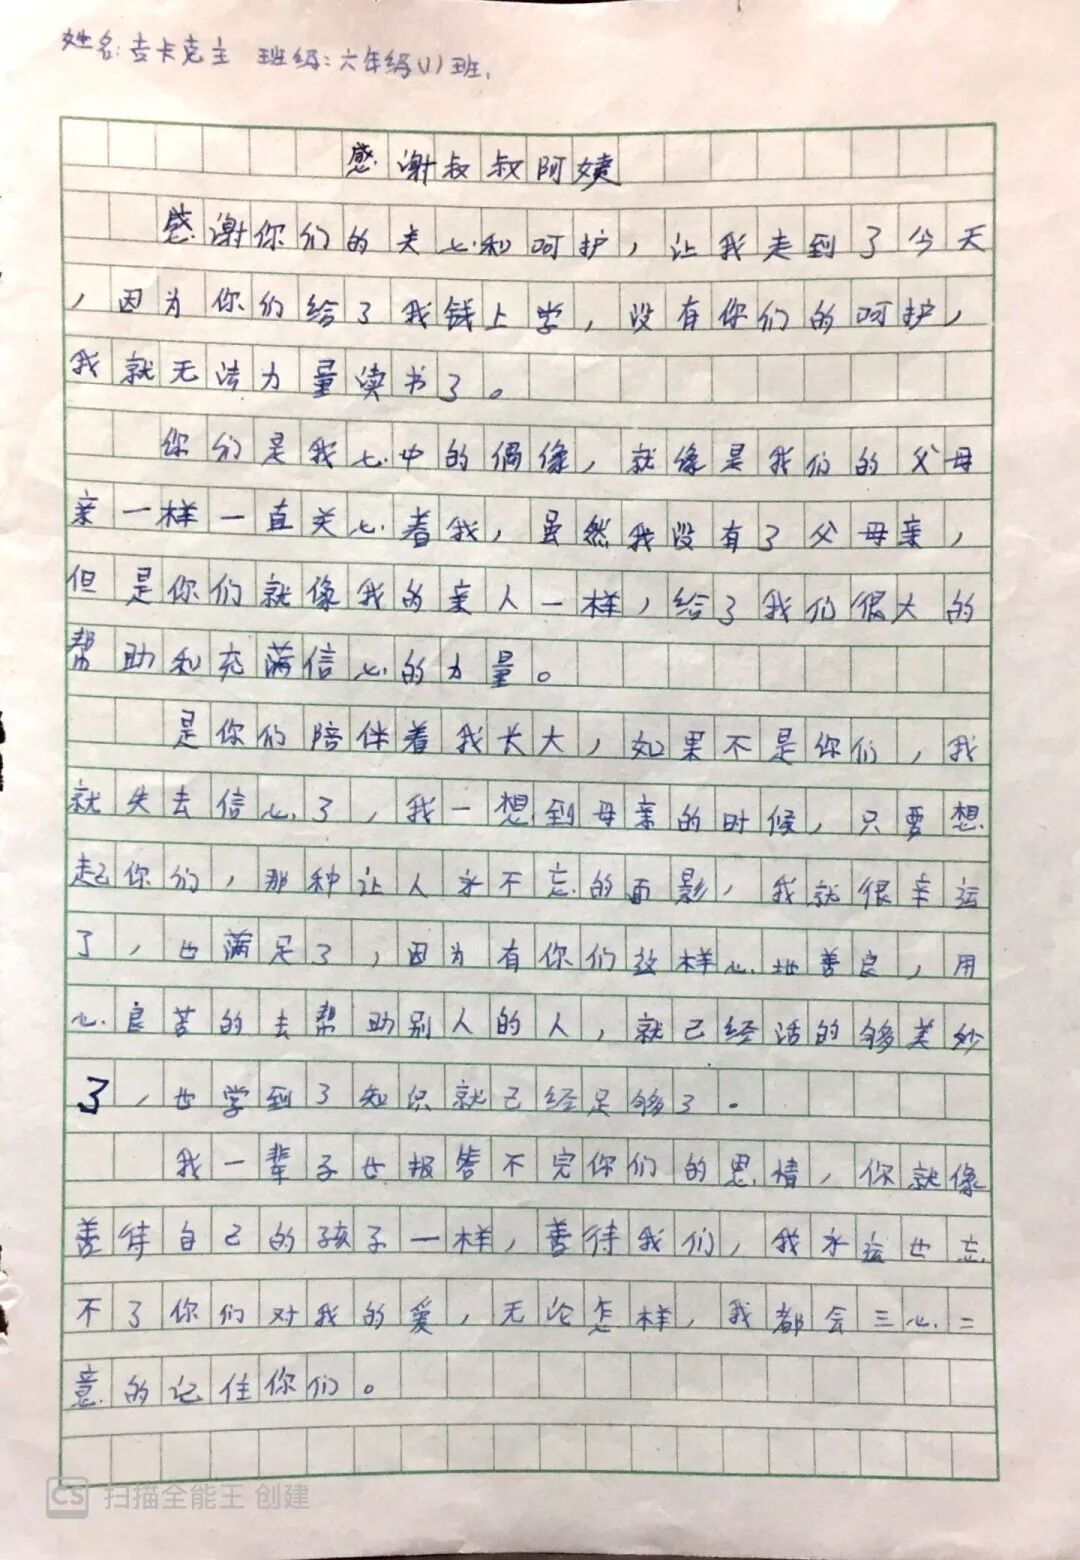 姓名:吉卡克主 班级:六年级(1)班.
感谢叔叔阿姨
感谢你们的关心和呵护,让我走到了今天
,因为你们给了我钱上学,没有你们的呵护,
我就无法力量读书了。
你们是我心中的偶像,就像是我们的父母
亲一样一直关心着我,虽然我没有了父母亲,
但是你们就像我的亲人一样,给了我们很大的
帮助和充满信心的力量。
是你们陪伴着我长大,如果不是你们,我
就失去信心了,我一想到母亲的时候,只要想
起你们,那种让人永不忘的面影,我就很幸运
了,也满足了,因为有你们这样心地善良,用
心良苦的去帮助别人的人,就已经活的够美妙
了,也学到了知识就已经足够了.
我一辈子也报答不完你们的恩情,你就像
善待自己的孩子一样,善待我们,我永远也忘
不了你们对我的爱,无论怎样,我都会三心二
意的记住你们。
CS 扫描全能王 创建